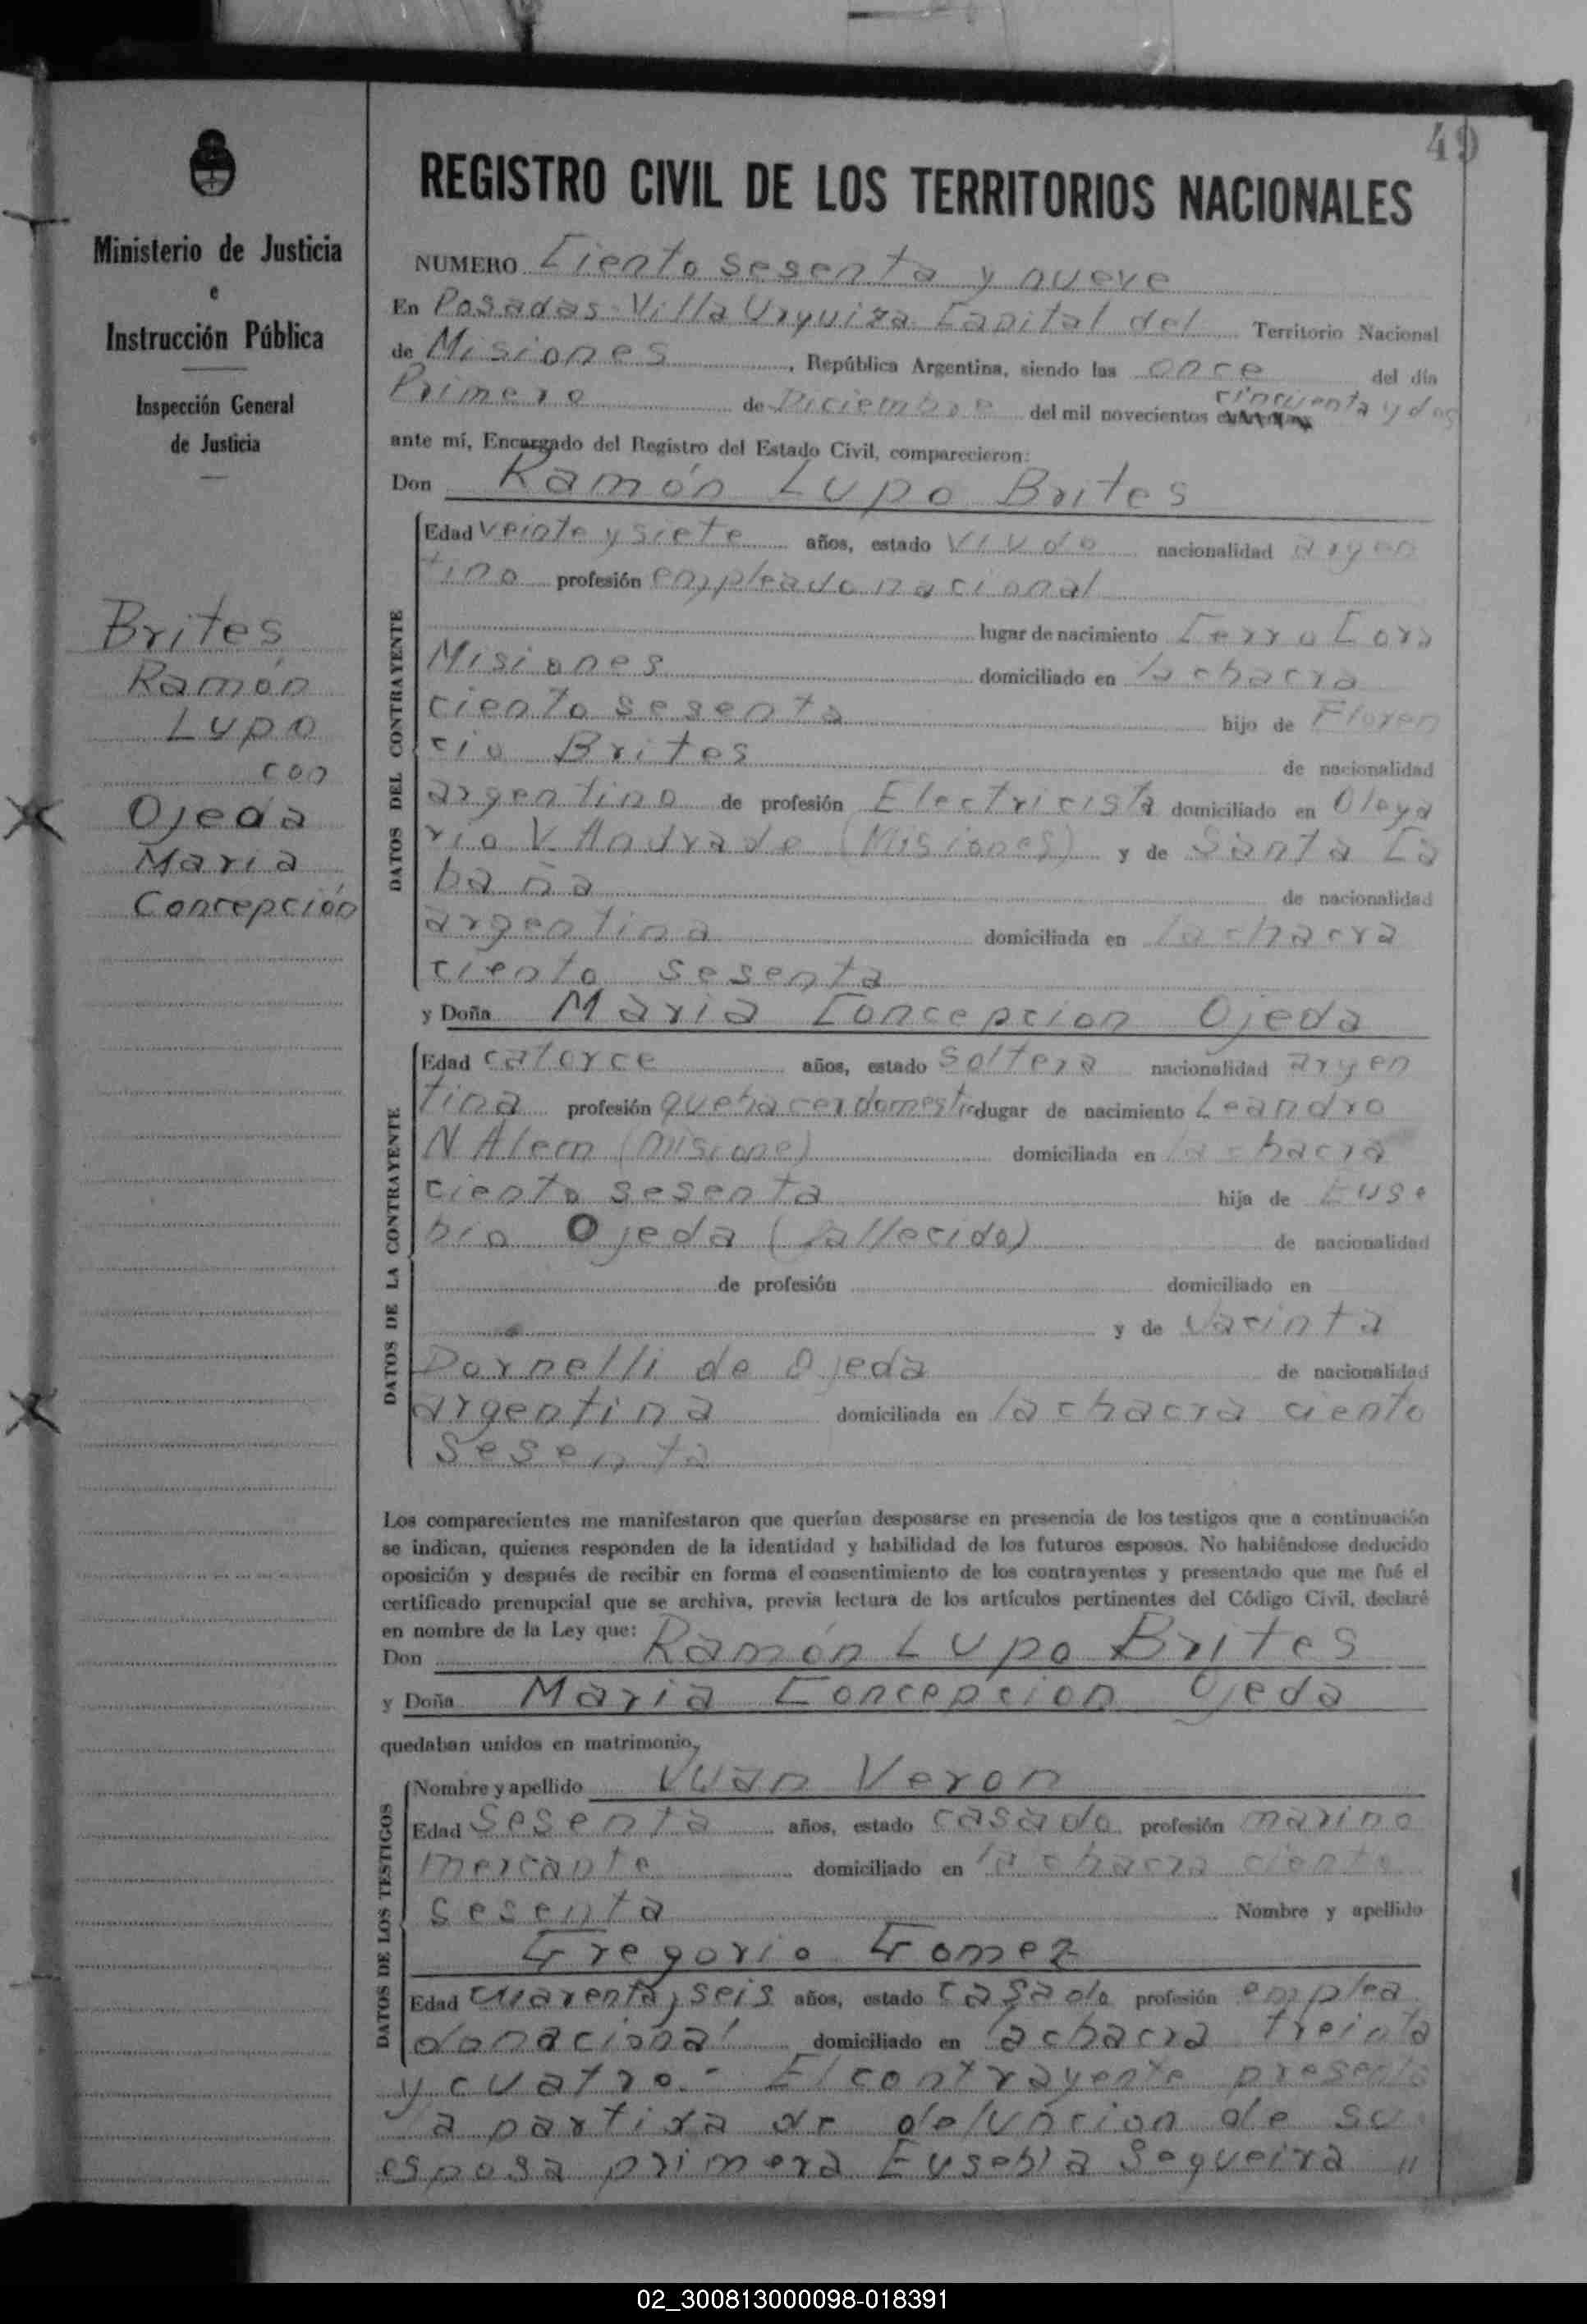 49
Ministerio de Justicia
e
Instrucción Pública
Inspección General
de Justicia
Brites
Ramón
Lupo
con
Ojeda
Maria
Concepción
REGISTRO CIVIL DE LOS TERRITORIOS NACIONALES
NUMERO Ciento sesenta y nueve
En Posadas-Villa Urquiza Capital del Territorio Nacional
de Misiones, República Argentina, siendo las once del día
Primero de Diciembre del mil novecientos cincuenta y dos
ante mí, Encargado del Registro del Estado Civil, comparecieron:
Don Ramón Lupo Brites
DATOS DEL CONTRAYENTE
Edad veinte y siete años, estado viudo nacionalidad argen
tino profesión empleado nacional
lugar de nacimiento Cerro Cora
Misiones domiciliado en la chacra
ciento sesenta hijo de Floren
cio Brites de nacionalidad
argentino de profesión Electricista domiciliado en Olega
rio V. Andrade (Misiones) y de Santa Ca
baña de nacionalidad
argentina domiciliada en la chacra
ciento sesenta
y Doña Maria Concepcion Ojeda
DATOS DE LA CONTRAYENTE
Edad catorce años, estado soltera nacionalidad argen
tina profesión quehacer domestic lugar de nacimiento Leandro
N Alem (Misione) domiciliada en la chacra
ciento sesenta hija de Euse
bio Ojeda (fallecido) de nacionalidad
de profesión domiciliado en
y de Jacinta
Dornelli de Ojeda de nacionalidad
argentina domiciliada en la chacra ciento
sesenta
Los comparecientes me manifestaron que querían desposarse en presencia de los testigos que a continuación
se indican, quienes responden de la identidad y habilidad de los futuros esposos. No habiéndose deducido
oposición y después de recibir en forma el consentimiento de los contrayentes y presentado que me fué el
certificado prenupcial que se archiva, previa lectura de los artículos pertinentes del Código Civil, declaré
en nombre de la Ley que:
Don Ramón Lupo Brites
y Doña Maria Concepcion Ojeda
quedaban unidos en matrimonio,
DATOS DE LOS TESTIGOS
Nombre y apellido Juan Veron
Edad sesenta años, estado casado profesión marino
mercante domiciliado en la chacra ciento
sesenta Nombre y apellido
Gregorio Gomez
Edad cuarenta y seis años, estado casado profesión emplea
do nacional domiciliado en la chacra treinta
y cuatro.- El contrayente presento
a partida de defuncion de su
esposa primera Eusebia Sequeira "
02_300813000098-018391